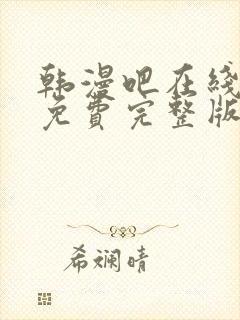 韩漫吧在线
免费完整版
希斓晴